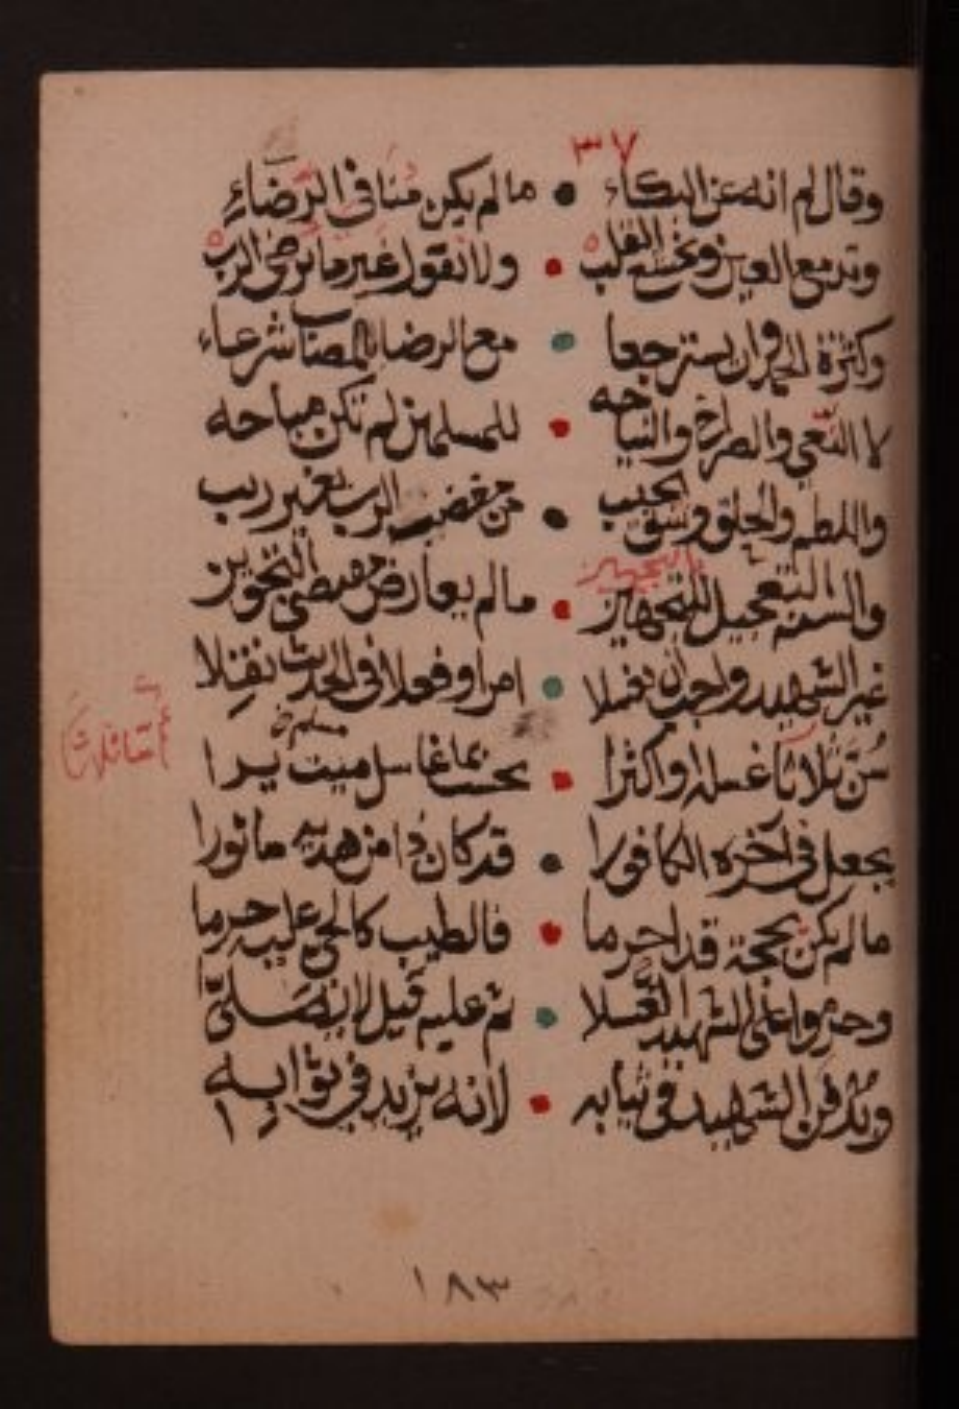 ٣٧
وقال لم انه عن البكاء • ما لم يكن منافي الرَّضَاءِ
وتدمع العين ونخشع القلب • ولا نقول غير ما نرضى الرب
وكثرة الحمد وان يسترجعا • مع الرضا بالمصاب شرعاء
لا النَّعي والصراخ والنياحه • للمسلمين لم تكن مباحه
واللطم والحلق وشق الجيب • من غضب الرب بغير ريب
والسنة التعجيل للتجهيز • ما لم يعارض مقتضى التجويز
بالتجهيز
غير الشهيد واجب ان يغسلا • امرا وفعلا في الحديث نقلا
سُنَّ ثلاثا غسله او اكثرا • بحسب ما غاسل ميت يرا
يجعل في آخره الكافورا • قد كان ذا من هديه ماثورا
ما لم يكن بحجة قد احرما • فالطيب كالحي عليه حرما
وحرموا على الشهيد الغسلا • ثم عليه قيل لا يصلى
ويدفن الشهيد في ثيابه • لانه يزيد في ثوابه
١٨٣